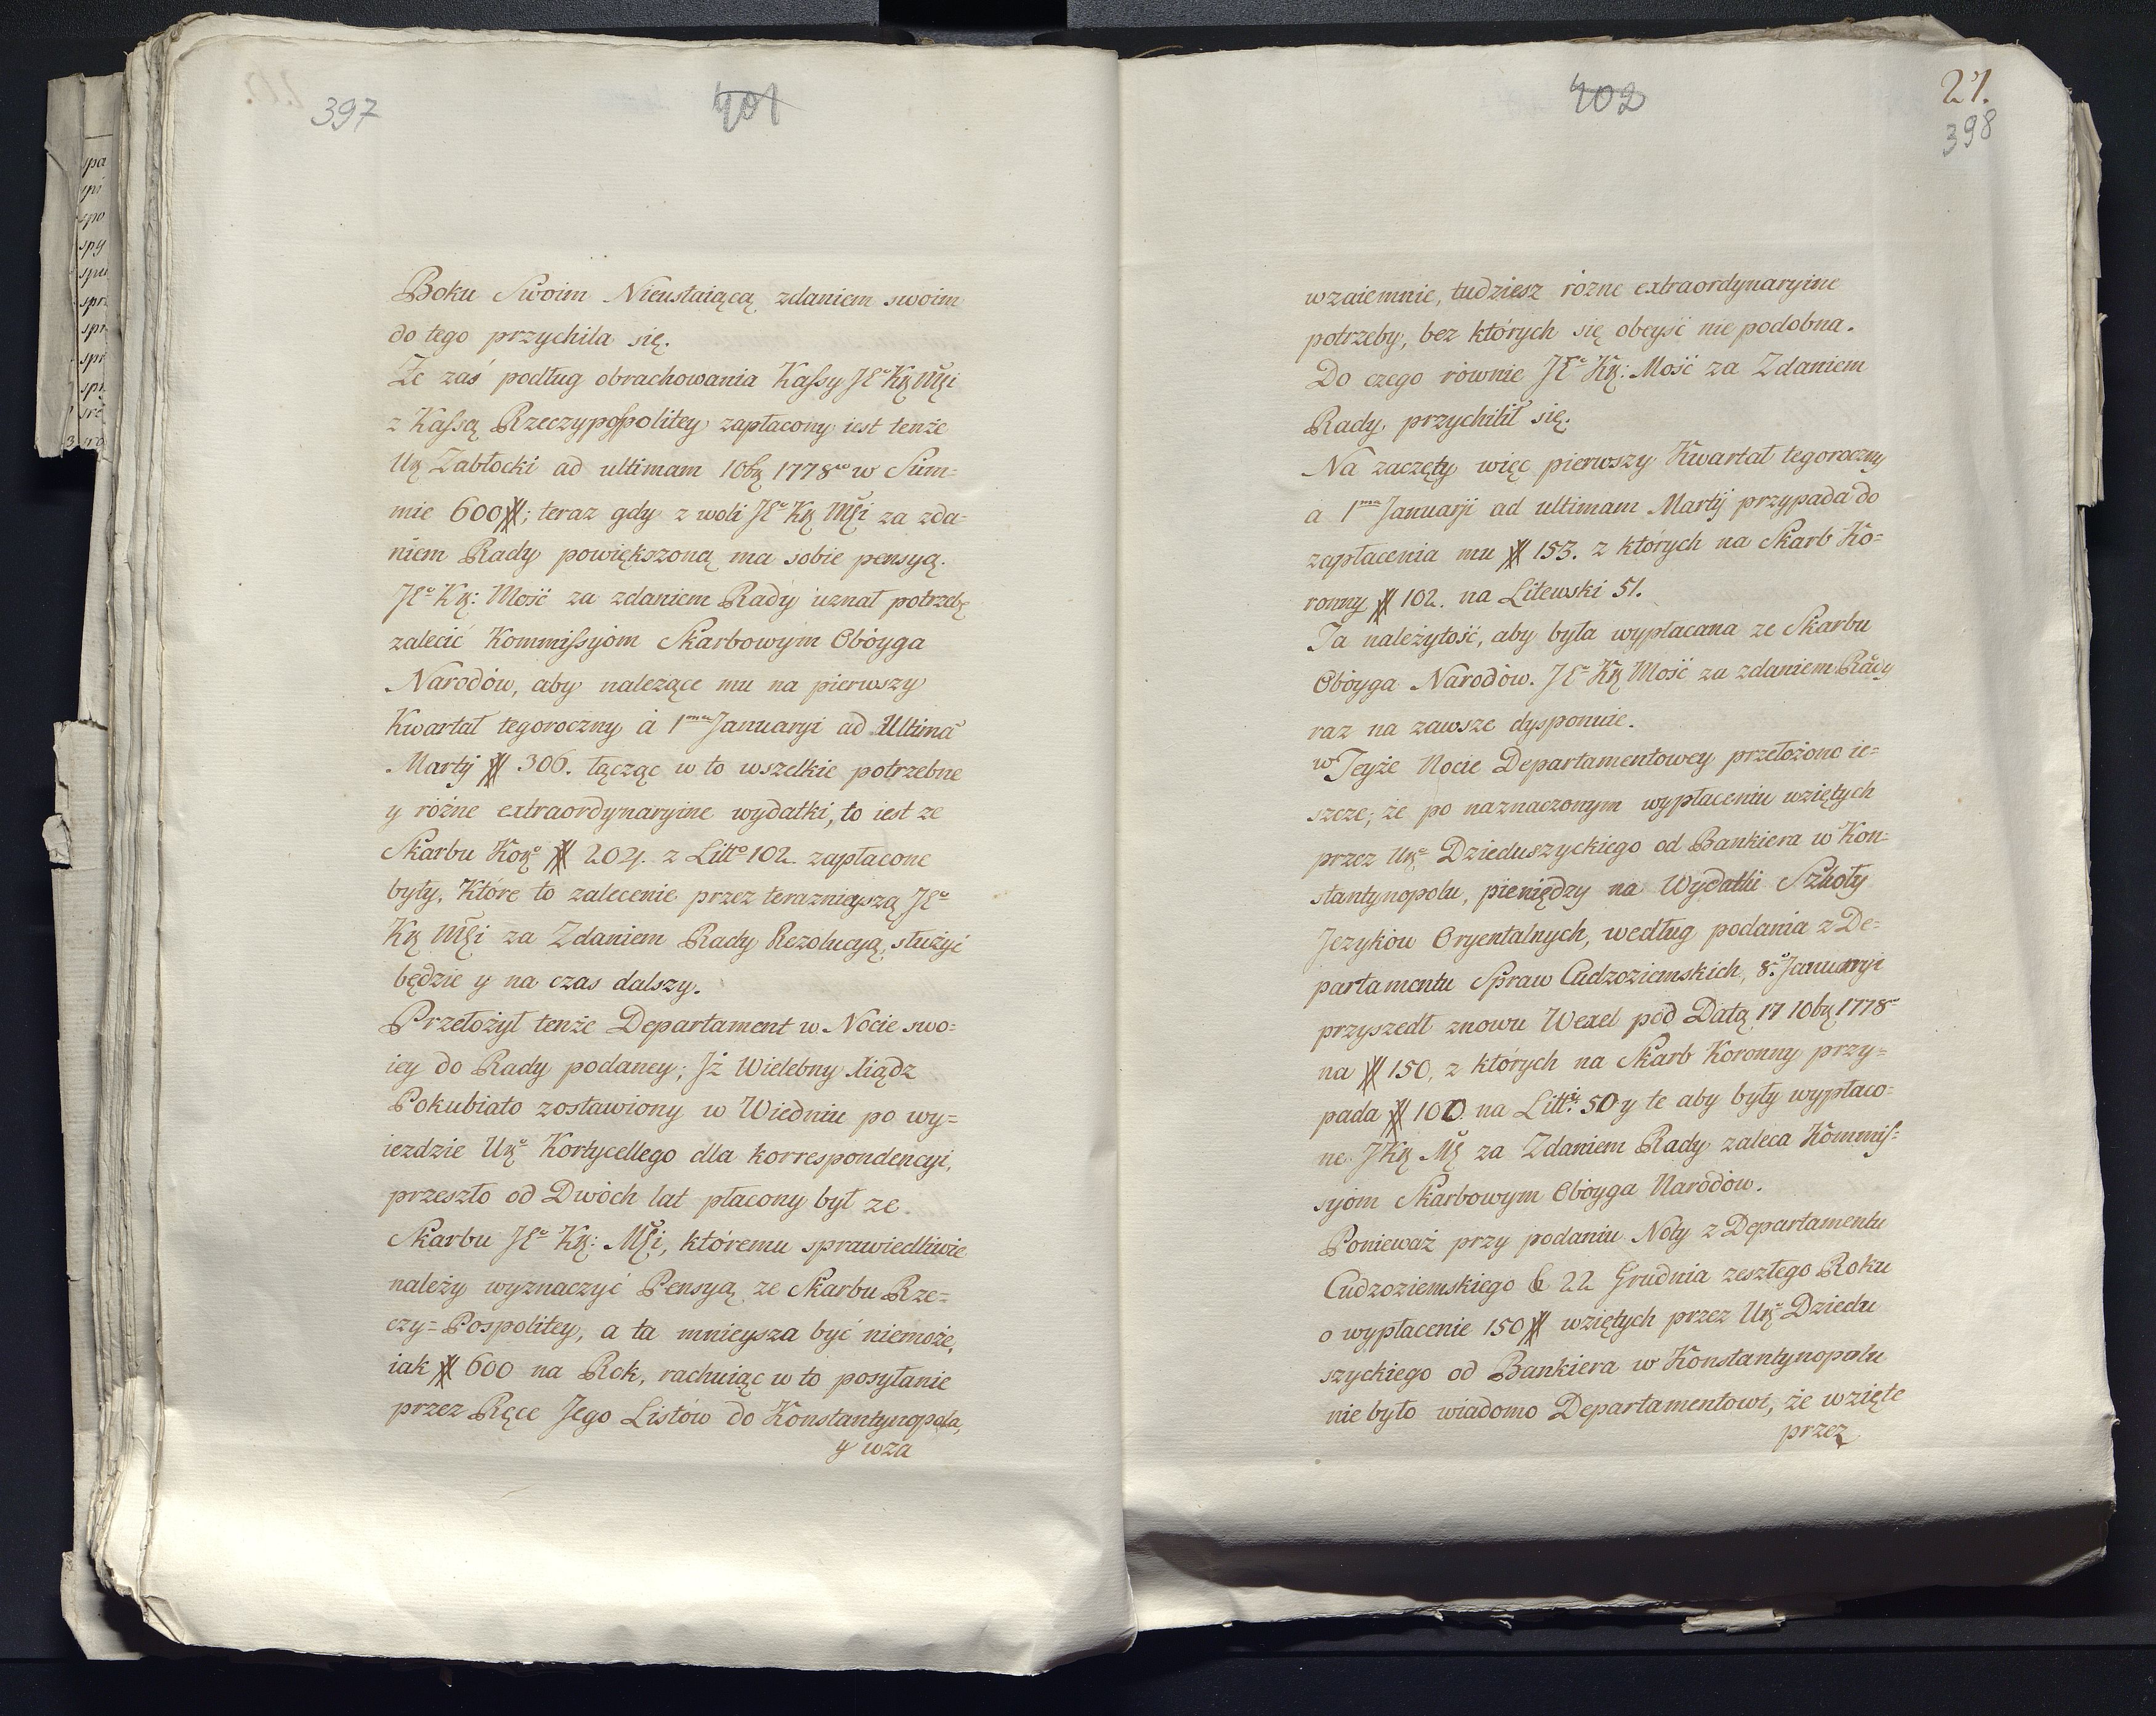 397
401
Boku Swoim Nieustaiącą zdaniem swoim
do tego przychila się.
Że zaś podług obrachowania Kassy JEo Kṛ Mṣi
z Kassą Rzeczypospolitey zapłacony iest tenże
Uṛ Zabłocki ad ultimam 10bṛ 1778vo w Sum=
mie 600 #; teraz gdy z woli JEo Kṛ Mṣi za zda=
niem Rady powiększoną ma sobie pensyą.
JEo Kṛ: Mość za zdaniem Rady uznał potrzebę
zalecić Kommissyiom Skarbowym Oboyga
Narodów, aby nalezące mu na pierwszy
Kwartał tegoroczny á 1ma Januaryi ad Ultimã
Martÿ # 306. łącząc w to wszelkie potrzebne
y różne extraordynaryine wydatki, to iest ze
Skarbu Koro # 204. z Litto 102. zapłacone
były. Które to zalecenie przez teraznieyszą JEo
Kṛ Mṣi za Zdaniem Rady Rezolucyą, służyć
będzie y na czas dalszy.
Przełożył tenże Departament w Nocie swo=
iey do Rady podaney; Jż Wielebny Xiądz
Pokubiato zostawiony w Wiedniu po wy=
iezdzie Uṛo Kortycellego dla korrespondencyi,
przeszło od Dwóch lat płacony był ze
Skarbu JEo Kṛ: Mṣi, któremu sprawiedliwie
należy wyznaczyć Pensyą ze Skarbu Rze=
czy=Pospolitey, a ta mnieysza być niemoże,
iak # 600 na Rok, rachuiąc w to posyłanie
przez Ręce Jego Listów do Konstantynopola,
y wza
402
27.
398
wzaiemnie, tudziesz rózne extraordynaryine
potrzeby, bez których się obeyść nie podobna.
Do czego równie JEo Kṛ: Mość za Zdaniem
Rady przychilił się.
Na zaczęty więc pierwszy Kwartał tegoroczny
á 1ma Januarji ad ultimam Martÿ przypada do
zapłacenia mu # 153. z których na Skarb Ko=
ronny # 102. na Litewski 51.
Ta należytość, aby była wypłacana ze Skarbu
Oboyga Narodów. JEo Kṛ Mość za zdaniem Rady
raz na zawsze dysponuie.
w Teyże Nocie Departamentowey przełożono ie=
szcze; że po naznaczonym wypłaceniu wziętych
przez Uṛo Dzieduszyckiego od Bankiera w Kon=
stantynopolu, pieniędzy na Wydatki Szkoły
Języków Oryentalnych, według podania z De=
partamentu Spraw Cudzoziemskich, 8o Januaryi
przyszedł znowu Wexel pod Datą 17 10bṛ 1778o
na # 150, z których na Skarb Koronny przy=
pada # 100 na Litti 50 y te aby były wypłaco=
ne JKṛ Mṣ za Zdaniem Rady zaleca Kommis=
syiom Skarbowym Oboyga Narodów.
Ponieważ przy podaniu Noty z Departamentu
Cudzoziemskiego 22 Grudnia zeszłego Roku
o wypłacenie 150 # wziętych przez Uṛo Dziedu
szyckiego od Bankiera w Konstantynopolu
nie było wiadomo Departamentowi, że wzięte
przez